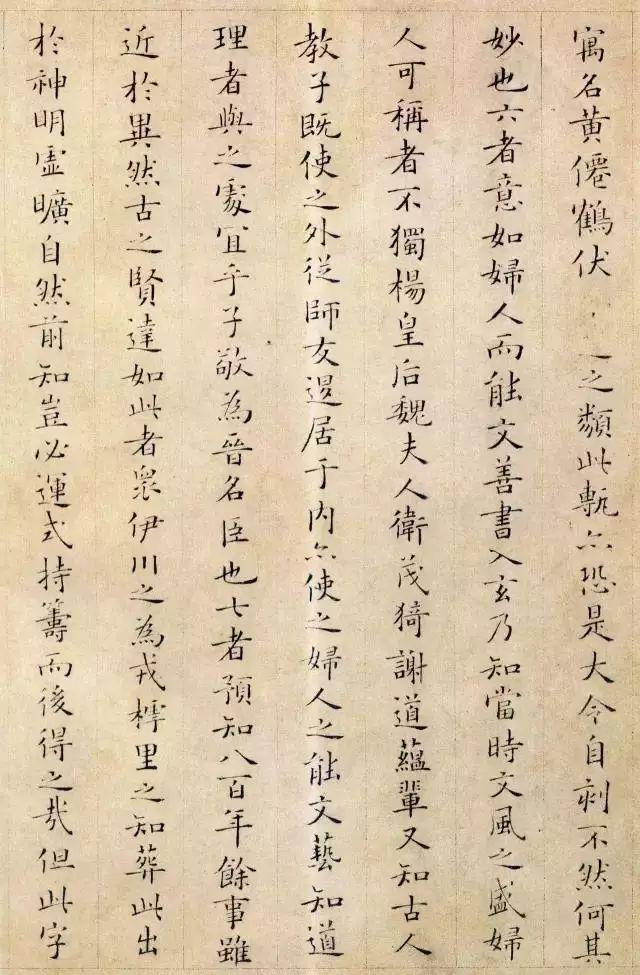 寓名黃僊鶴伏之類此甎亦恐是大令自刻不然何其
妙也六者意如婦人而能文善書入玄乃知當時文風之盛婦
人可稱者不獨楊皇后魏夫人衛茂猗謝道蘊輩又知古人
教子既使之外從師友退居于內亦使之婦人之能文藝知道
理者與之處宜乎子敬為晉名臣也七者預知八百年餘事雖
近於異然古之賢達如此者衆伊川之為戎樗里之知葬此出
於神明虛曠自然前知豈必運式持籌而後得之哉但此字